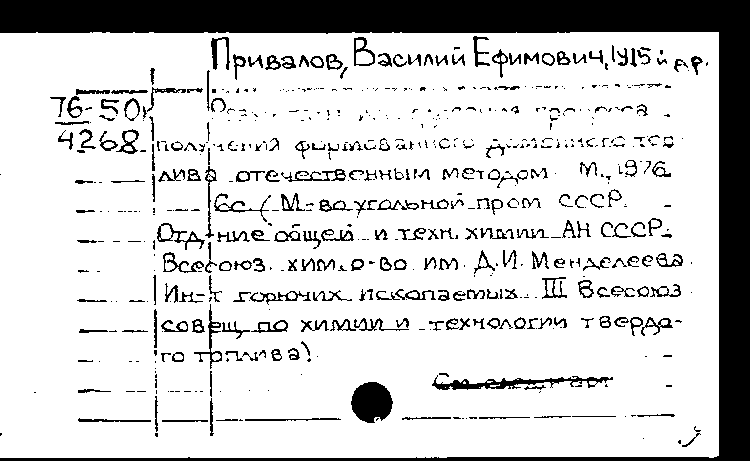 Привалов, Василий Ефимович, 1915 й г.р.
76-50
4268
процесса
получения формованного доменного топ-
лива отечественным методом. М., 1976
6с. (М-во угольной пром СССР.
Отд-ние общей и техн. химии АН СССР.
Всесоюз. хим. о-во им. Д.И. Менделеева.
Ин-т горючих ископаемых. III Всесоюз
совещ по химии и технологии твердо-
го топлива).
См. след. карт